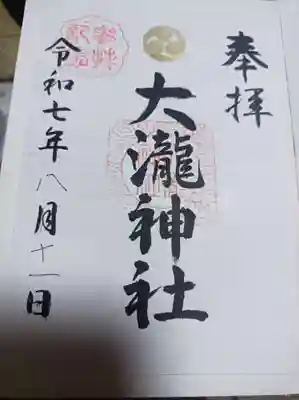 奉拝
大瀧神社
令和七年八月十一日